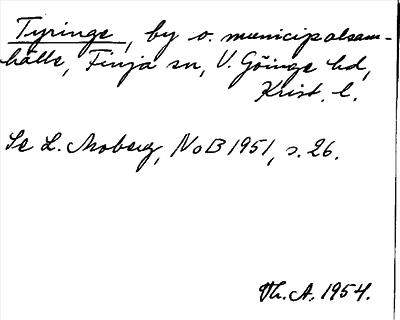 Tyringe, by o. municipalsam-
hälle, Finja sn, V. Göinge hd,
Krist. l.
Se L. Moberg, NoB 1951, s. 26.
Th. A. 1954.